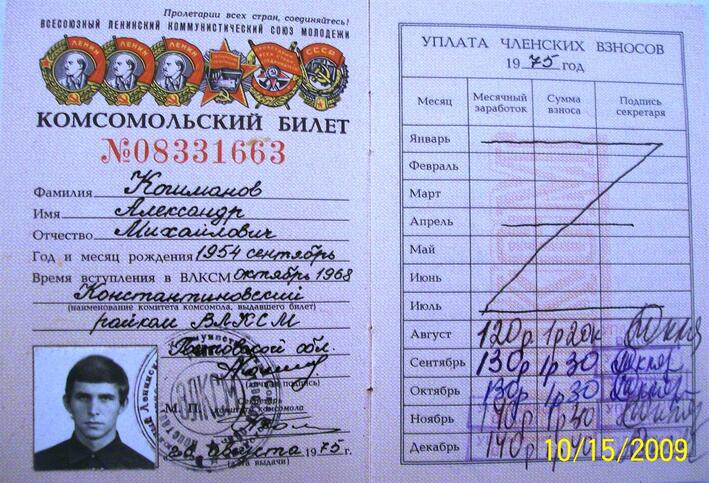 Пролетарии всех стран, соединяйтесь!
ВСЕСОЮЗНЫЙ ЛЕНИНСКИЙ КОММУНИСТИЧЕСКИЙ СОЮЗ МОЛОДЕЖИ
КОМСОМОЛЬСКИЙ БИЛЕТ
№08331663
Фамилия Кошманов
Имя Александр
Отчество Михайлович
Год и месяц рождения 1954 сентябрь
Время вступления в ВЛКСМ октябрь 1968
Константиновский
(наименование комитета комсомола, выдавшего билет)
райком ВЛКСМ
обл.
(личная подпись)
М. П. Секретарь
комитета комсомола
ВЛКСМ
августа 1975 г.
(дата выдачи)
УПЛАТА ЧЛЕНСКИХ ВЗНОСОВ
1975 год
Месяц Месячный заработок Сумма взноса Подпись секретаря
Январь
Февраль
Март
Апрель
Май
Июнь
Июль
Август 120р 1р20к
Сентябрь 130р 1р30
Октябрь 130р 1р30
Ноябрь 140р 1р40
Декабрь 140р
10/15/2009